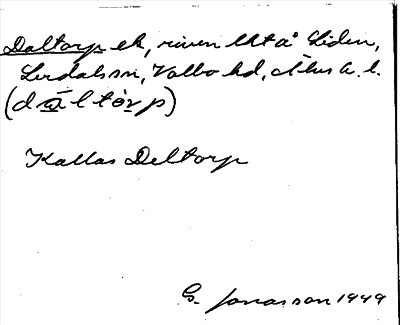 Daltorp ek, riven lht å Liden,
Lerdals sn, Valbo hd, Älvs b. l.
(dal tòrp)
Kallas Deltorp
G. Jonasson 1949